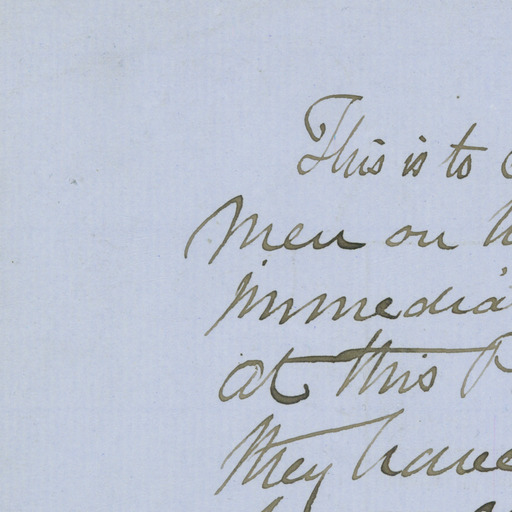 This is to
Men on
immedia
at this
they have